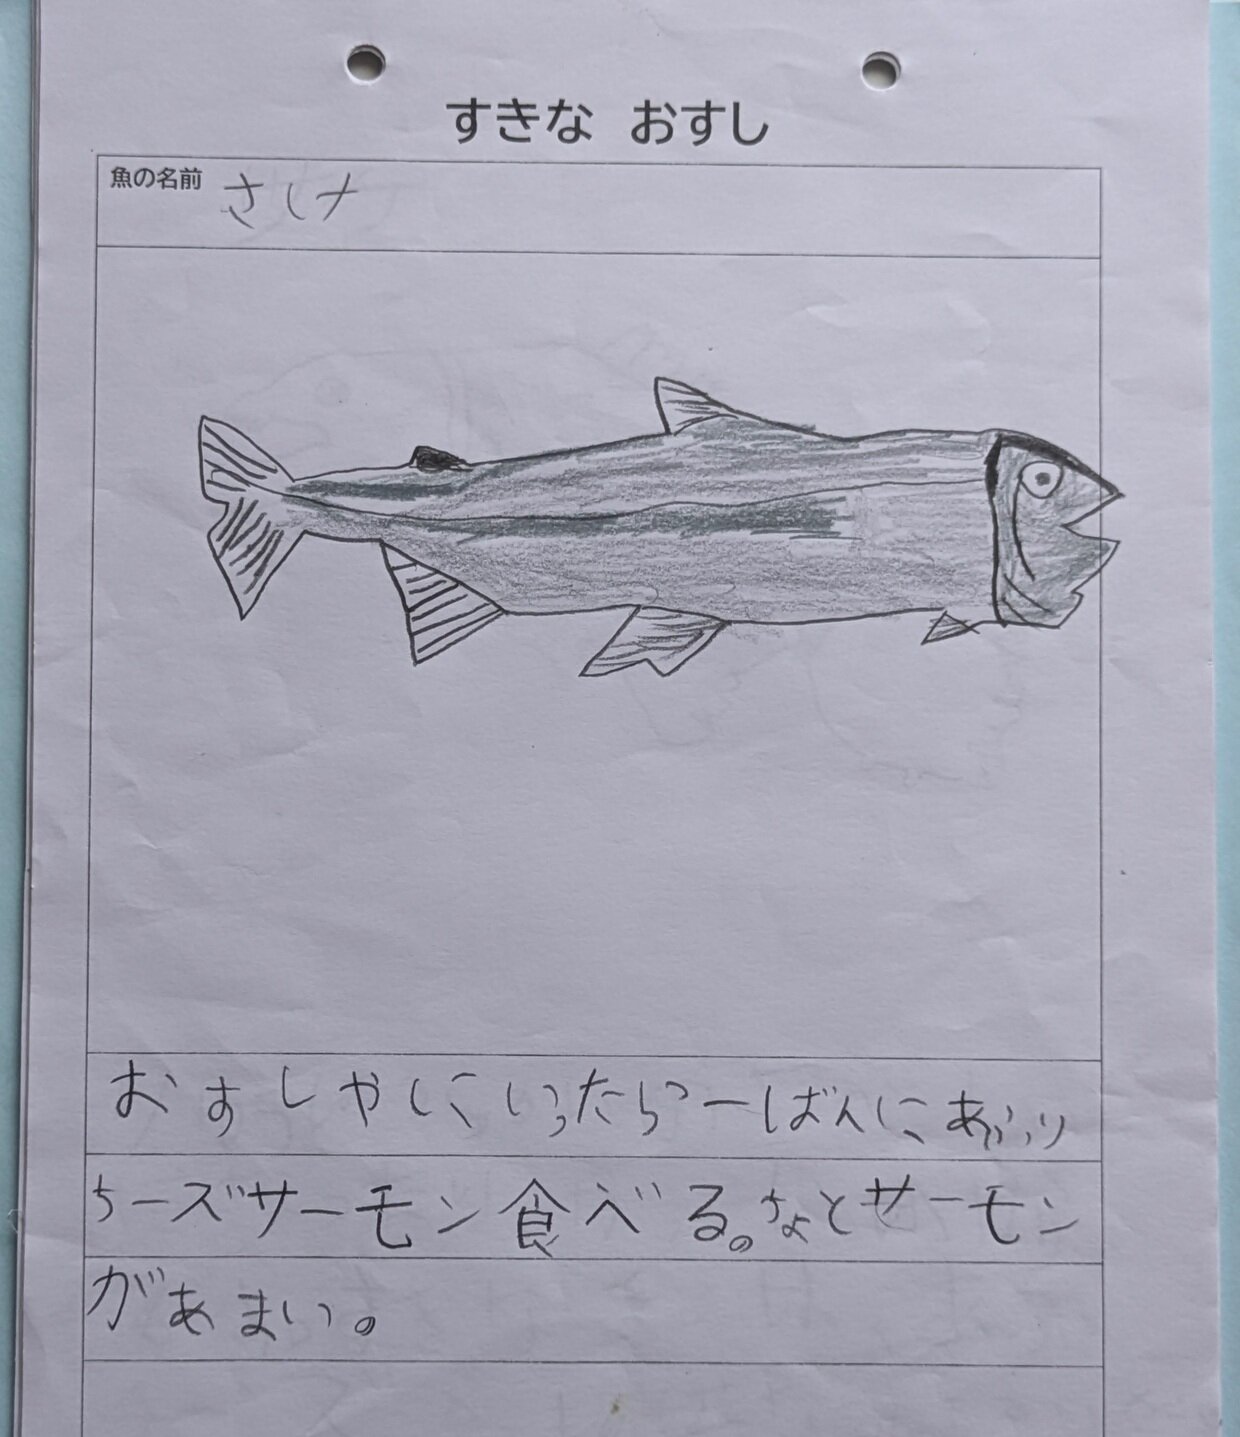 すきな おすし
魚の名前 さけ
おすしやにいったら一ばんにあぶり
ちーズサーモン食べる。ちょとサーモン
があまい。